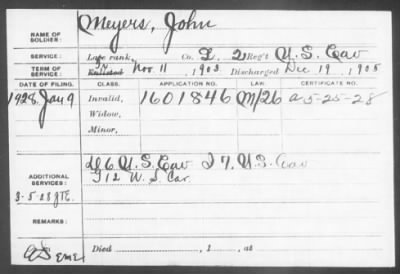 NAME OF SOLDIER: Meyers, John
SERVICE: Late rank, Co. L, 2 Reg't U.S. Cav
TERM OF SERVICE: Enlisted Nov. 11, 1903 Discharged Dec 19, 1905
DATE OF FILING. CLASS. APPLICATION NO. LAW. CERTIFICATE NO.
1928 Jan 9 Invalid, 1601846 M/26 a-5-25-28
Widow,
Minor,
ADDITIONAL SERVICES: 6 U.S. Cav 7. U.S. Cav
12 U.S. Cav
3-5-28
REMARKS:
Died , 1 , at